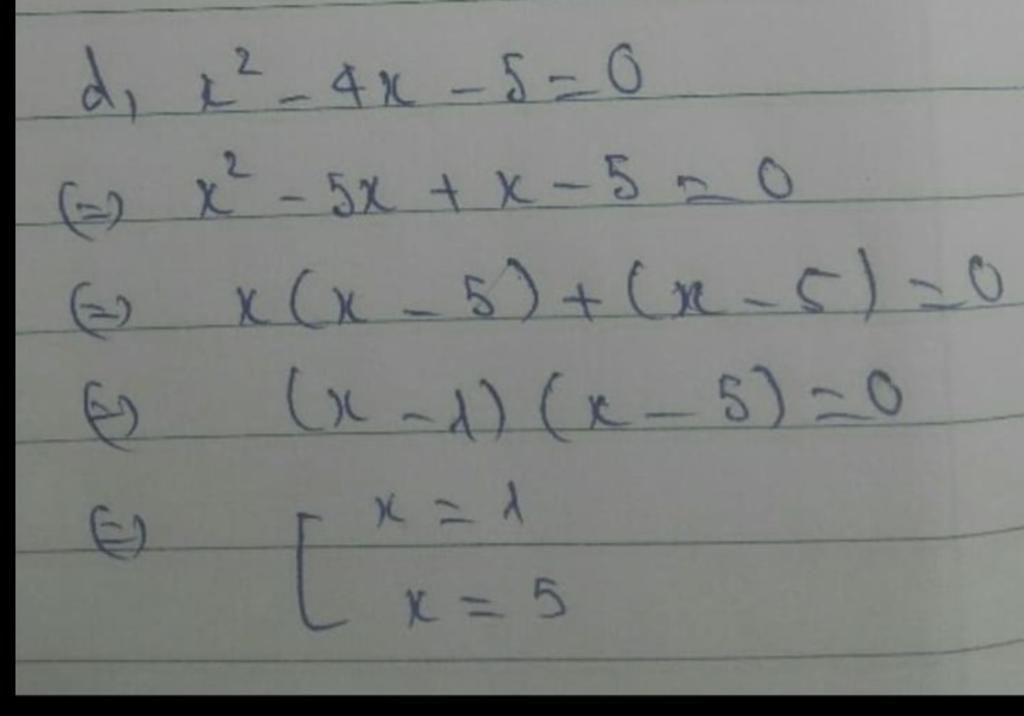 d, x² - 4x - 5 = 0
(=) x² - 5x + x - 5 = 0
(=) x(x - 5) + (x - 5) = 0
(=) (x - 1)(x - 5) = 0
(=) [ x = 1
x = 5